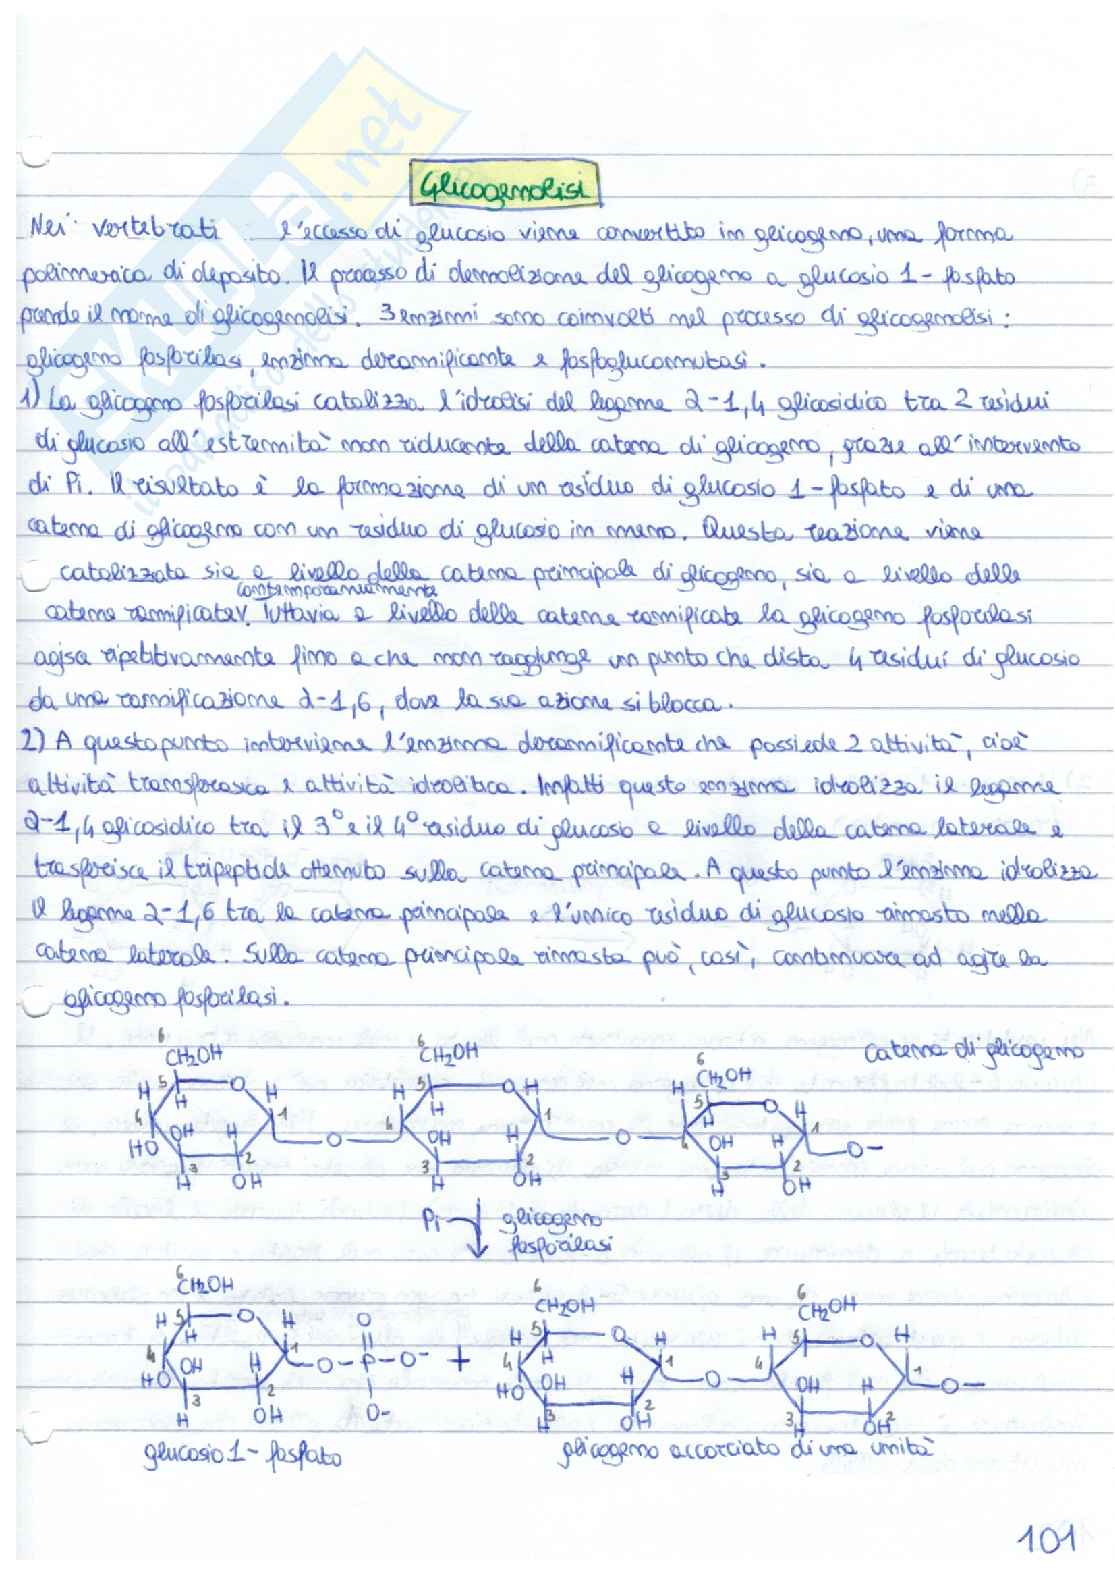 Glicogenolisi
Nei vertebrati l'eccesso di glucosio viene convertito in glicogeno, una forma
polimerica di deposito. Il processo di demolizione del glicogeno a glucosio 1-fosfato
prende il nome di glicogenolisi. 3 enzimi sono coinvolti nel processo di glicogenolisi:
glicogeno fosforilasi, enzima deramificante e fosfoglucomutasi.
1) La glicogeno fosforilasi catalizza l'idrolisi del legame α-1,4 glicosidico tra 2 residui
di glucosio all'estremità non riducente della catena di glicogeno, grazie all'intervento
di Pi. Il risultato è la formazione di un residuo di glucosio 1-fosfato e di una
catena di glicogeno con un residuo di glucosio in meno. Questa reazione viene
catalizzata sia a livello della catena principale di glicogeno, sia a livello delle
contemporaneamente
catene ramificate. Tuttavia a livello delle catene ramificate la glicogeno fosforilasi
agisce ripetitivamente fino a che non raggiunge un punto che dista 4 residui di glucosio
da una ramificazione α-1,6, dove la sua azione si blocca.
2) A questo punto interviene l'enzima deramificante che possiede 2 attività, cioè
attività transferasica e attività idrolitica. Infatti questo enzima idrolizza il legame
α-1,4 glicosidico tra il 3° e il 4° residuo di glucosio a livello della catena laterale e
trasferisce il tripeptide ottenuto sulla catena principale. A questo punto l'enzima idrolizza
il legame α-1,6 tra la catena principale e l'unico residuo di glucosio rimasto nella
catena laterale. Sulla catena principale rimasta può, così, continuare ad agire la
glicogeno fosforilasi.
catena di glicogeno
6 6 6
CH2OH CH2OH CH2OH
H 5 O H H 5 O H H 5 O H
H H H
4 1 4 1 4 1
HO OH H O OH H O OH H O-
3 2 3 2 3 2
H OH H OH H OH
Pi glicogeno
fosforilasi
6 6 6
CH2OH CH2OH CH2OH
H 5 O H O H 5 O H H 5 O H
H H H
4 1 O-P-O- + 4 1 O 4 1 O-
HO OH H HO OH H OH H
3 2 O- 3 2 3 2
H OH H OH H OH
glucosio 1-fosfato glicogeno accorciato di una unità
101
skuola.net
il paradiso dello studente